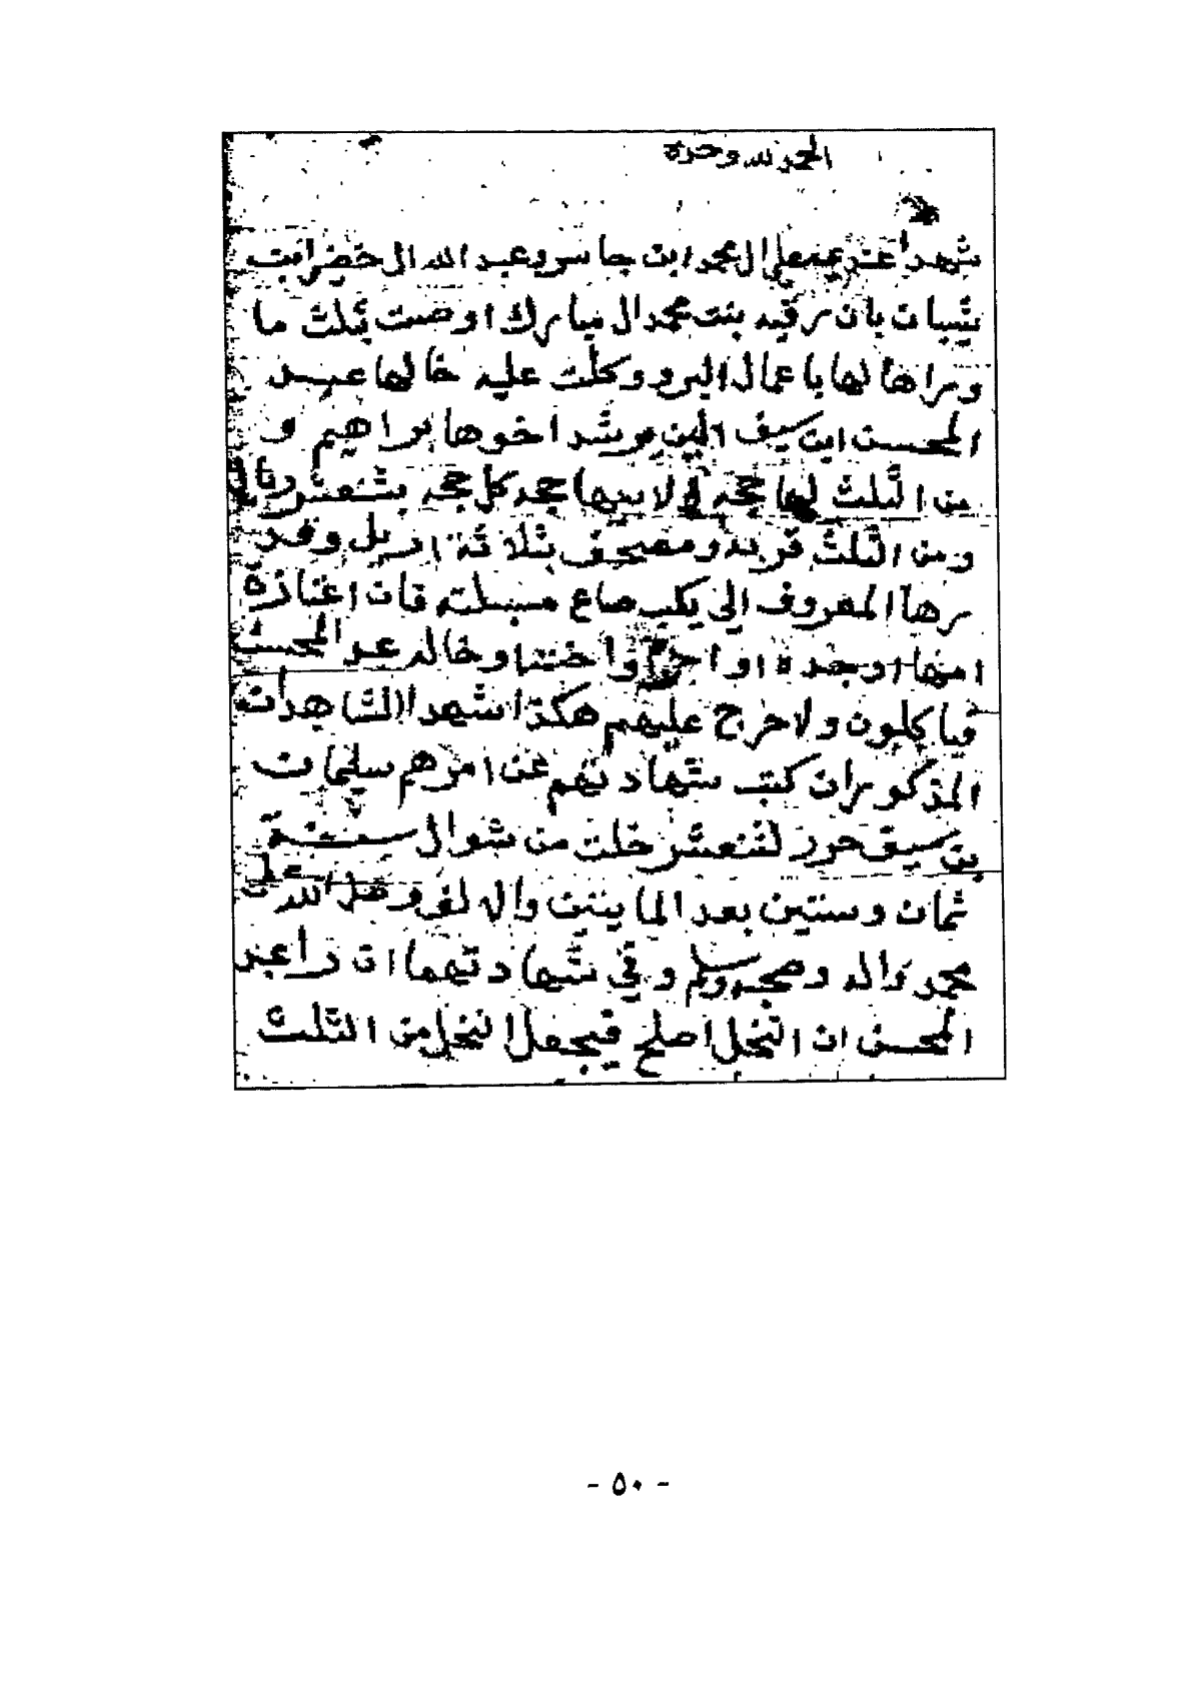 الحمد لله وحده
شهدا علي ال محمد ابن جاسر وعبد الله ال خضير ابن
ثنيان بان رقيه بنت محمد ال مبارك اوصت بثلث ما
وراها لها باعمال البر ووكلت عليه خالها عبد
المحسن ابن سيف الين يرشد اخوها براهيم و
من الثلث لها حجه ولابيها حجه كل حجه بثنعشر ريال
ومن الثلث قربه ومصحف بثلاثة اريل وقد
رها المعروف الي يكب صاع مسبلته فان اغتازه
امها او جده او اخوها واختها وخاله عبد المحسن
فياكلون ولا حرج عليهم هكذا شهدا الشاهدان
المذكوران كتب شهادتهم عن امرهم سليمان
بن سيف حرر لثنعشر خلت من شوال سنة
ثمان وستين بعد المايتين والالف وصل الله على
محمد واله وصحبه وسلم وفي شهادتهما ان را عبد
المحسن ان النخل اصلح فيجعل النخل من الثلث
- ٥٠ -